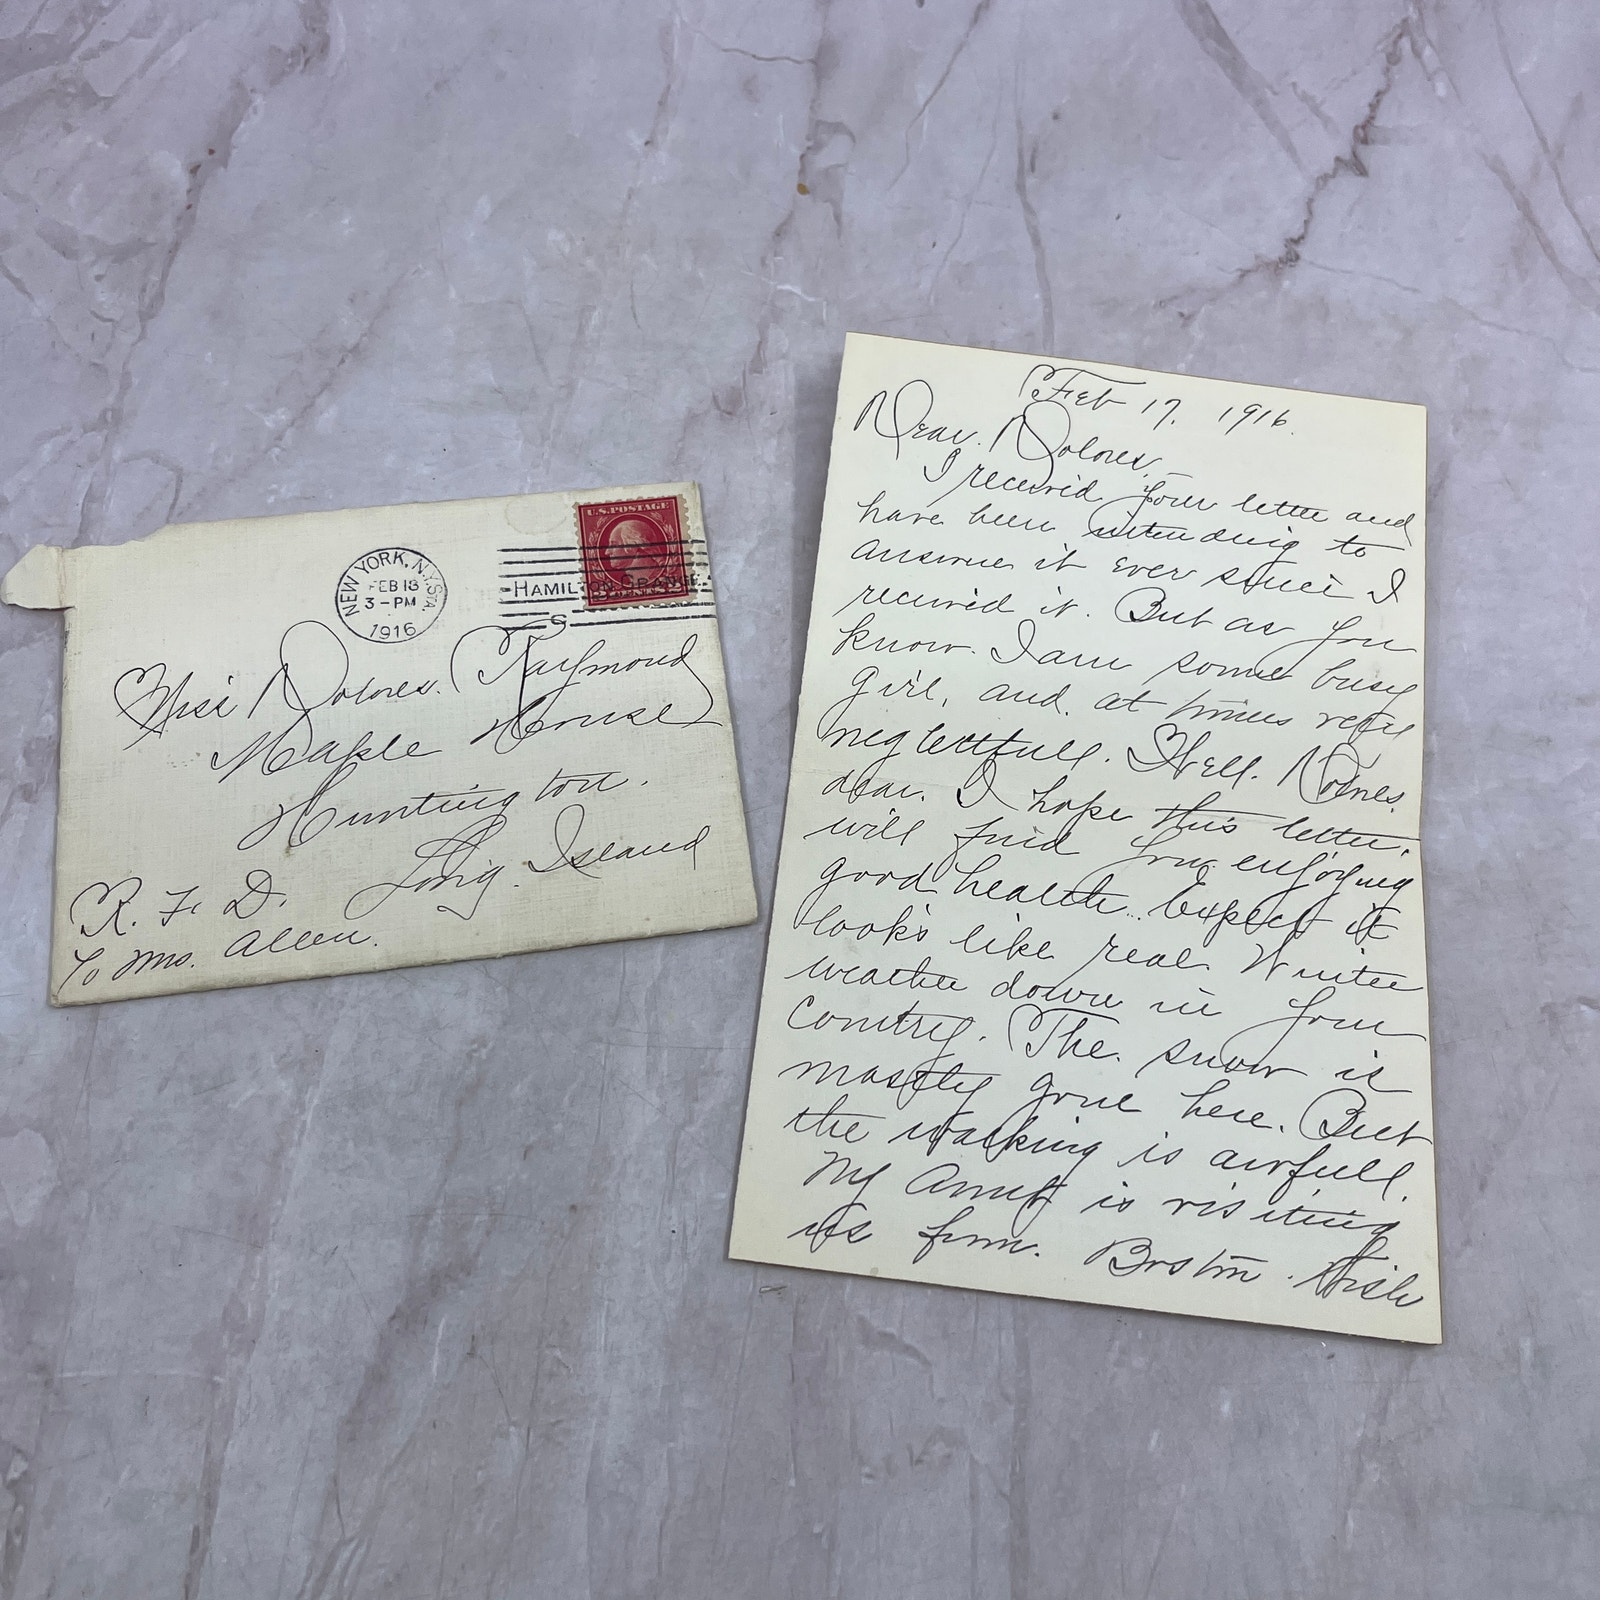 NEW YORK, N.Y. STA
FEB 18
3-PM
1916
U.S. POSTAGE
HAMILTON GRANGE
Miss Dolores Raymond
Maple House
Huntington.
Long Island
R. F. D.
℅ Mrs. Allen.
Feb 17, 1916.
Dear Dolores,
I received your letter and
have been intending to
answer it ever since I
received it. But as you
know. I am some busy
girl, and at times very
neglectfull. Well. Dolores
dear. I hope this letter.
will find you enjoying
good health. Expect it
looks like real Winter
weather down in your
Contry. The snow is
mostly gone here. But
the walking is awfull.
My Aunt is visiting
us from. Boston. Wish